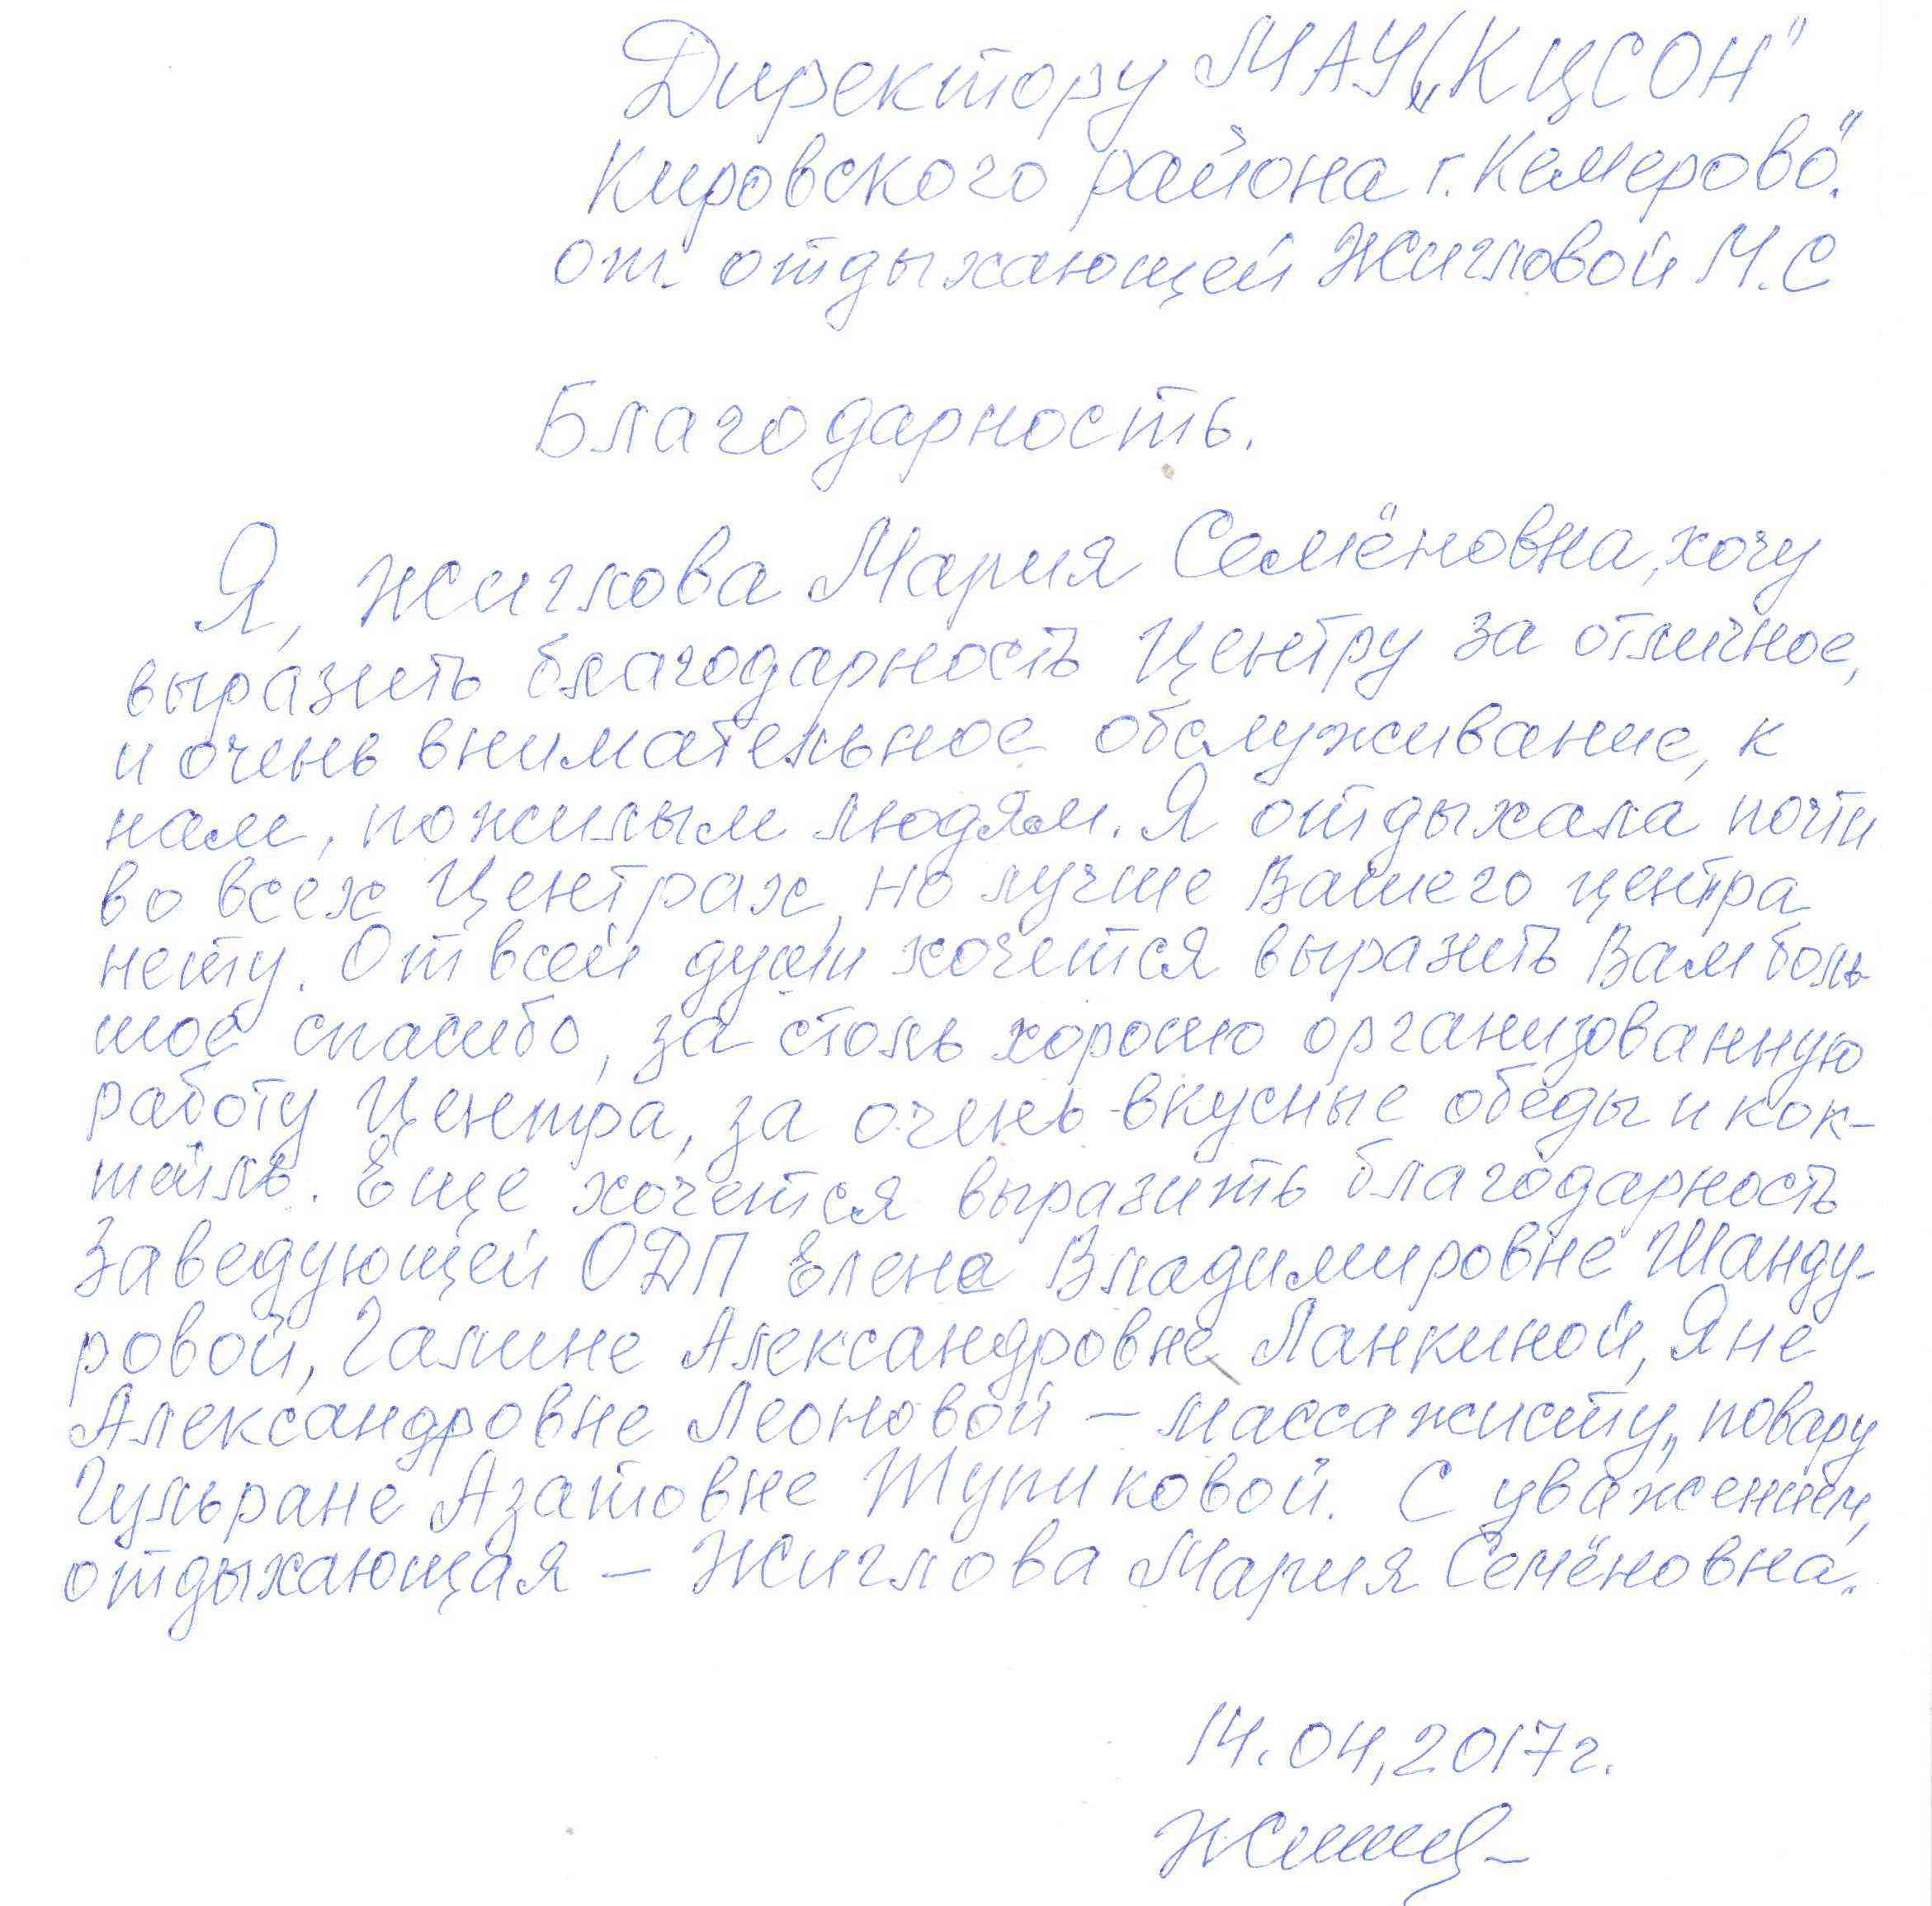 Директору МАУ „КЦСОН"
Кировского района г. Кемерово".
от отдыхающей Жигловой М.С
Благодарность.
Я, Жиглова Мария Семёновна, хочу
выразить благодарность Центру за отличное,
и очень внимательное обслуживание, к
нам, пожилым людям. Я отдыхала почти
во всех Центрах, но лучше Вашего центра
нету. От всей души хочется выразить Вам боль
шое спасибо, за столь хорошо организованную
работу Центра, за очень вкусные обеды и кок-
тейль. Еще хочется выразить благодарность
Заведующей ОДП Елене Владимировне Шанду-
ровой, Галине Александровне Ланкиной, Яне
Александровне Леоновой – массажисту, повару
Гульране Азатовне Тупиковой. С уважением,
отдыхающая – Жиглова Мария Семёновна.
14.04.2017г.